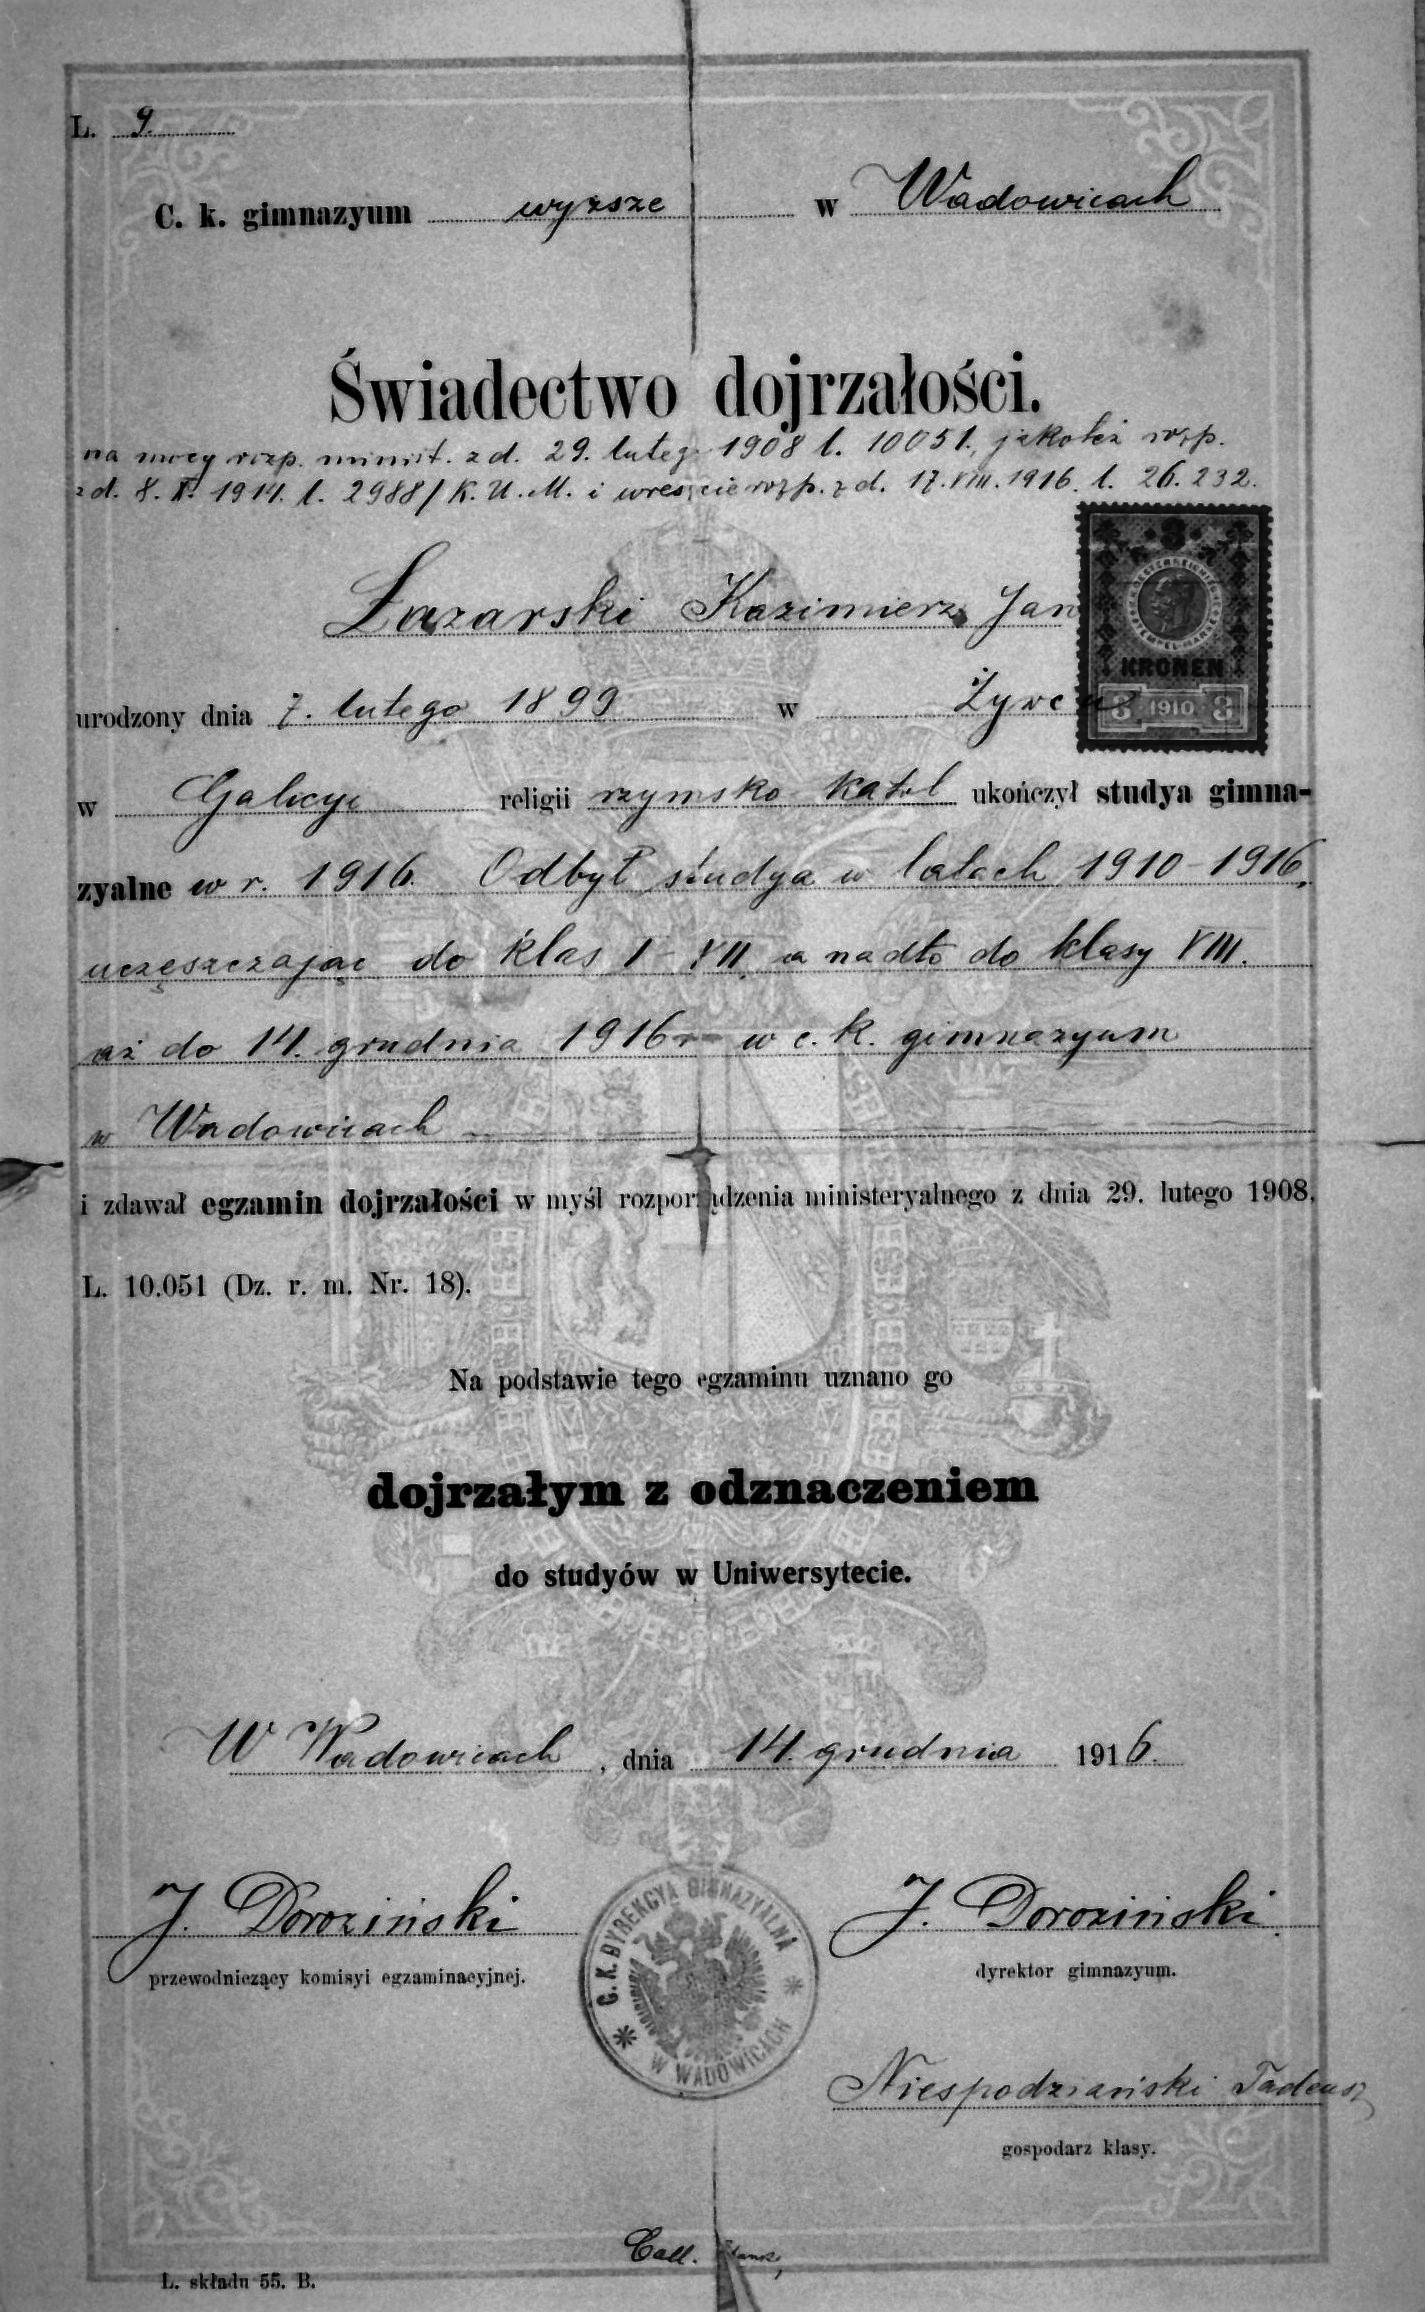 L. 9.
C. k. gimnazyum wyższe w Wadowicach
Świadectwo dojrzałości.
na mocy rozp. minist. z d. 29. luteg. 1908 l. 10051., jakoteż rozp.
z d. 8. X. 1914. l. 2988/K.U.M. i wreszcie rozp. z d. 17. VIII. 1916. l. 26.232.
Łazarski Kazimierz Jan
3
OESTERREICHISCHE STEMPEL-MARKE
KRONEN
3 1910 3
urodzony dnia 7. lutego 1899 w Żywcu
w Galicyi religii rzymsko katol ukończył studya gimna-
zyalne w r. 1916. Odbył studya w latach 1910-1916,
uczęszczając do klas I-VII, a nadto do klasy VIII.
aż do 14. grudnia 1916 r w c. k. gimnazyum
w Wadowicach
i zdawał egzamin dojrzałości w myśl rozporządzenia ministeryalnego z dnia 29. lutego 1908.
L. 10.051 (Dz. r. m. Nr. 18).
Na podstawie tego egzaminu uznano go
dojrzałym z odznaczeniem
do studyów w Uniwersytecie.
W Wadowicach, dnia 14. grudnia 1916.
J. Doroziński
przewodniczący komisyi egzaminacyjnej.
C. K. DYREKCYA GIMNAZYALNA
W WADOWICACH
J. Doroziński
dyrektor gimnazyum.
Niespodziański Tadeusz
gospodarz klasy.
Coll.
L. składu 55. B.